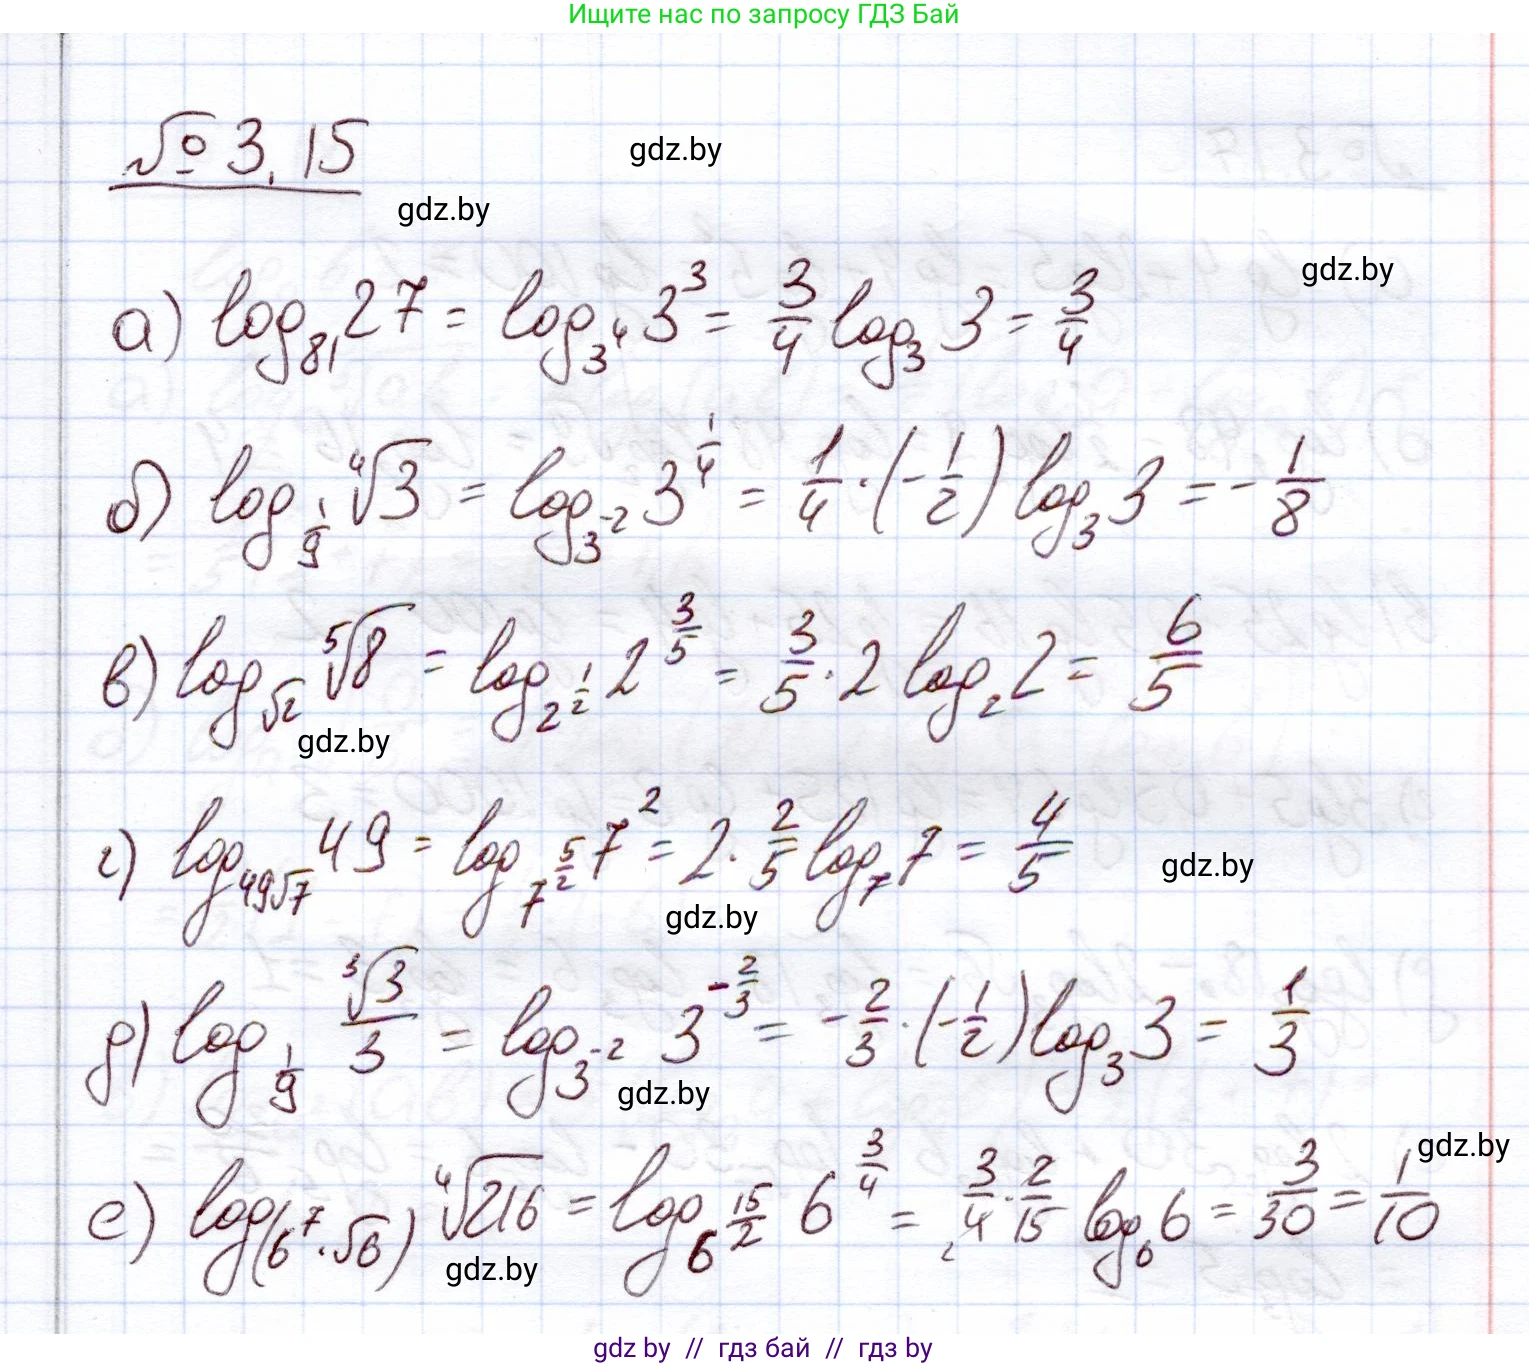 Ищите нас по запросу ГДЗ Бай
№ 3.15
gdz.by
gdz.by
gdz.by
а) log₈₁ 27 = log_{3^4} 3^3 = 3/4 log₃ 3 = 3/4
б) log_{1/9} ∜3 = log_{3^{-2}} 3^{1/4} = 1/4 · (-1/2) log₃ 3 = - 1/8
в) log_{√2} ⁵√8 = log_{2^{1/2}} 2^{3/5} = 3/5 · 2 log₂ 2 = 6/5
gdz.by
г) log_{49√7} 49 = log_{7^{5/2}} 7^2 = 2 · 2/5 log₇ 7 = 4/5
gdz.by
gdz.by
д) log_{1/9} ∛3/3 = log_{3^{-2}} 3^{-2/3} = - 2/3 · (-1/2) log₃ 3 = 1/3
gdz.by
gdz.by
е) log_{(6^7 · √6)} ∜216 = log_{6^{15/2}} 6^{3/4} = 3/4 · 2/15 log₆ 6 = 3/30 = 1/10
gdz.by
gdz by // гдз бай // гдз by